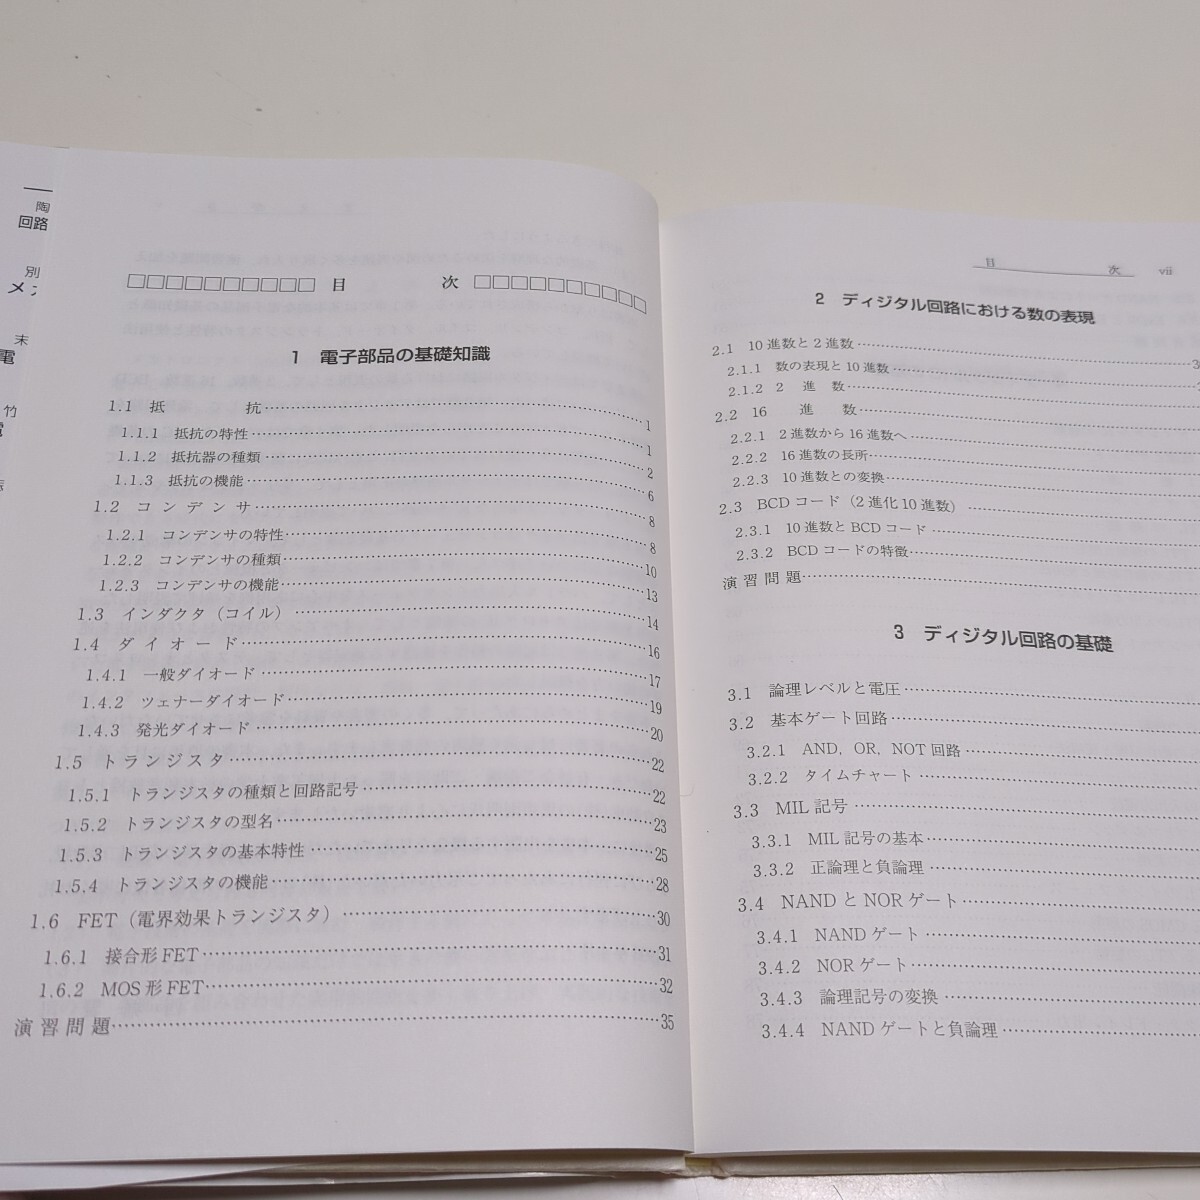 陶
回路
別
末
電
竹
目 次
1 電子部品の基礎知識
1.1 抵 抗 1
1.1.1 抵抗の特性 1
1.1.2 抵抗器の種類 2
1.1.3 抵抗の機能 6
1.2 コンデンサ 8
1.2.1 コンデンサの特性 8
1.2.2 コンデンサの種類 10
1.2.3 コンデンサの機能 13
1.3 インダクタ(コイル) 14
1.4 ダイオード 16
1.4.1 一般ダイオード 17
1.4.2 ツェナーダイオード 19
1.4.3 発光ダイオード 20
1.5 トランジスタ 22
1.5.1 トランジスタの種類と回路記号 22
1.5.2 トランジスタの型名 23
1.5.3 トランジスタの基本特性 25
1.5.4 トランジスタの機能 28
1.6 FET(電界効果トランジスタ) 30
1.6.1 接合形FET 31
1.6.2 MOS形FET 32
演習問題 35
目 次 vii
2 ディジタル回路における数の表現
2.1 10進数と2進数 3
2.1.1 数の表現と10進数
2.1.2 2 進 数
2.2 16 進 数
2.2.1 2進数から16進数へ
2.2.2 16進数の長所
2.2.3 10進数との変換
2.3 BCDコード(2進化10進数)
2.3.1 10進数とBCDコード
2.3.2 BCDコードの特徴
演習問題
3 ディジタル回路の基礎
3.1 論理レベルと電圧
3.2 基本ゲート回路
3.2.1 AND, OR, NOT回路
3.2.2 タイムチャート
3.3 MIL記号
3.3.1 MIL記号の基本
3.3.2 正論理と負論理
3.4 NANDとNORゲート
3.4.1 NANDゲート
3.4.2 NORゲート
3.4.3 論理記号の変換
3.4.4 NANDゲートと負論理